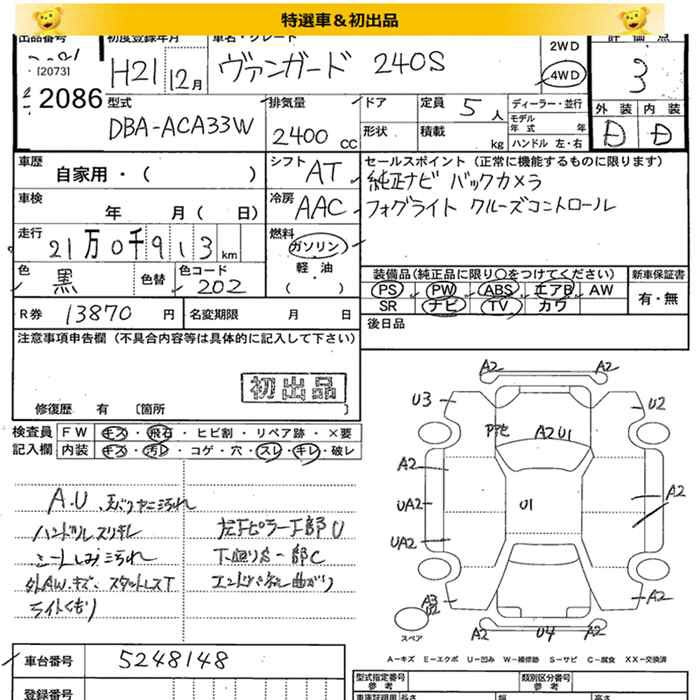 特選車＆初出品
出品番号 初度登録年月 車名・グレード 2WD 評価点
[2073] H21 12月 ヴァンガード 240S 4WD 3
2086 型式 排気量 ドア 定員 5人 ディーラー・並行 外装 内装
DBA-ACA33W 2400 CC 形状 積載 kg モデル年式 年式 ハンドル 左・右 D D
車歴 シフト セールスポイント（正常に機能するものに限ります）
自家用・（ ） AT 純正ナビ バックカメラ
車検 年 月（ 日） 冷房 AAC フォグライト クルーズコントロール
走行 21万0千913km 燃料 ガソリン
色 黒 色替 色コード 202 軽・油 （ ） 装備品（純正品に限り○をつけてください） 新車保証書
PS PW ABS エアB AW 有・無
R券 13870 円 名変期限 月 日 SR ナビ TV カワ
注意事項申告欄（不具合内容等は具体的に記入して下さい） 後日品
初出品
修復歴 有 〔箇所 〕
検査員 FW キズ・飛石・ヒビ割・リペア跡・×要
記入欄 内装 キズ・汚レ・コゲ・穴・スレ・キレ・破レ
A2 A2
U3 U2
A2 U1
A2 A2
UA2 U1
UA2
A.U
ハンドルスリキレ 左下ピラー下部U
シートしみ汚れ 下廻りS一部C
外AW.キズ、スタットレスT エンドパネル曲がり
ライトくもり
A3 A2
スペア A2 U4 A2
車台番号 5248148 A－キズ E－エクボ U－凹み W－補修跡 S－サビ C－腐食 XX－交換済
登録番号 型式指定番号 参考 類別区分番号 参考